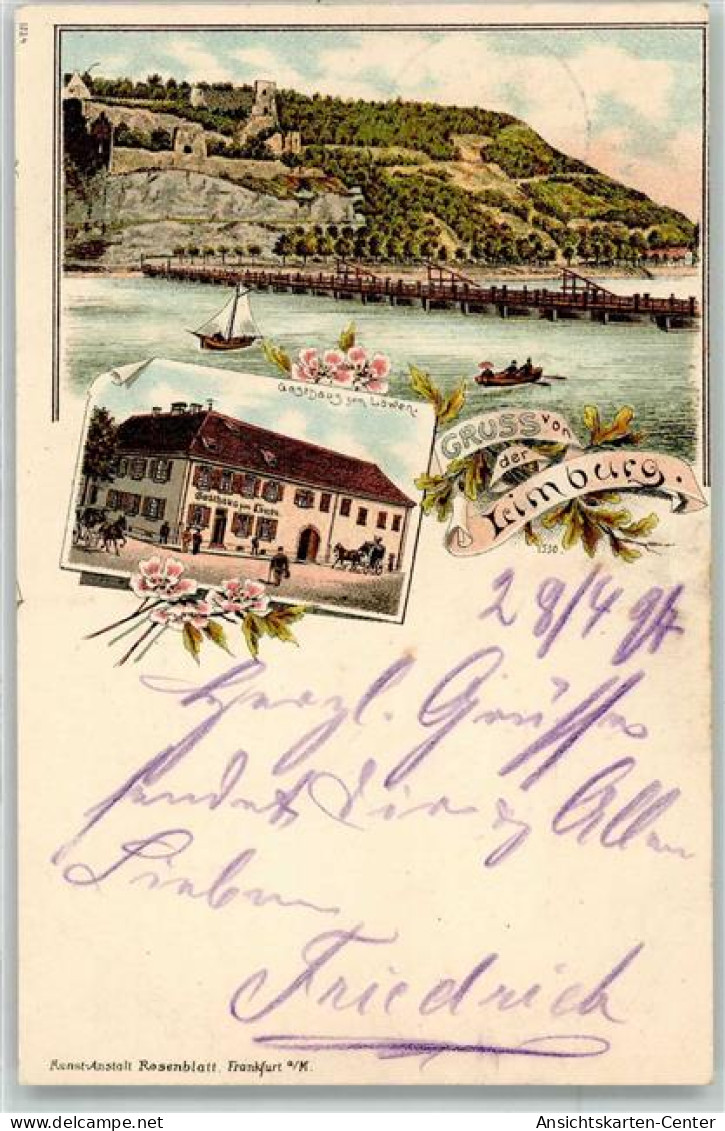 1224
Gasthaus zum Löwen.
Gasthaus zum Löwen
GRUSS von
der
Limburg.
1530
28/4 97
Herzl. Grüße
sendet Dir & Allen
Lieben
Friedrich
Kunst-Anstalt Rosenblatt, Frankfurt a/M.
Ansichtskarten-Center